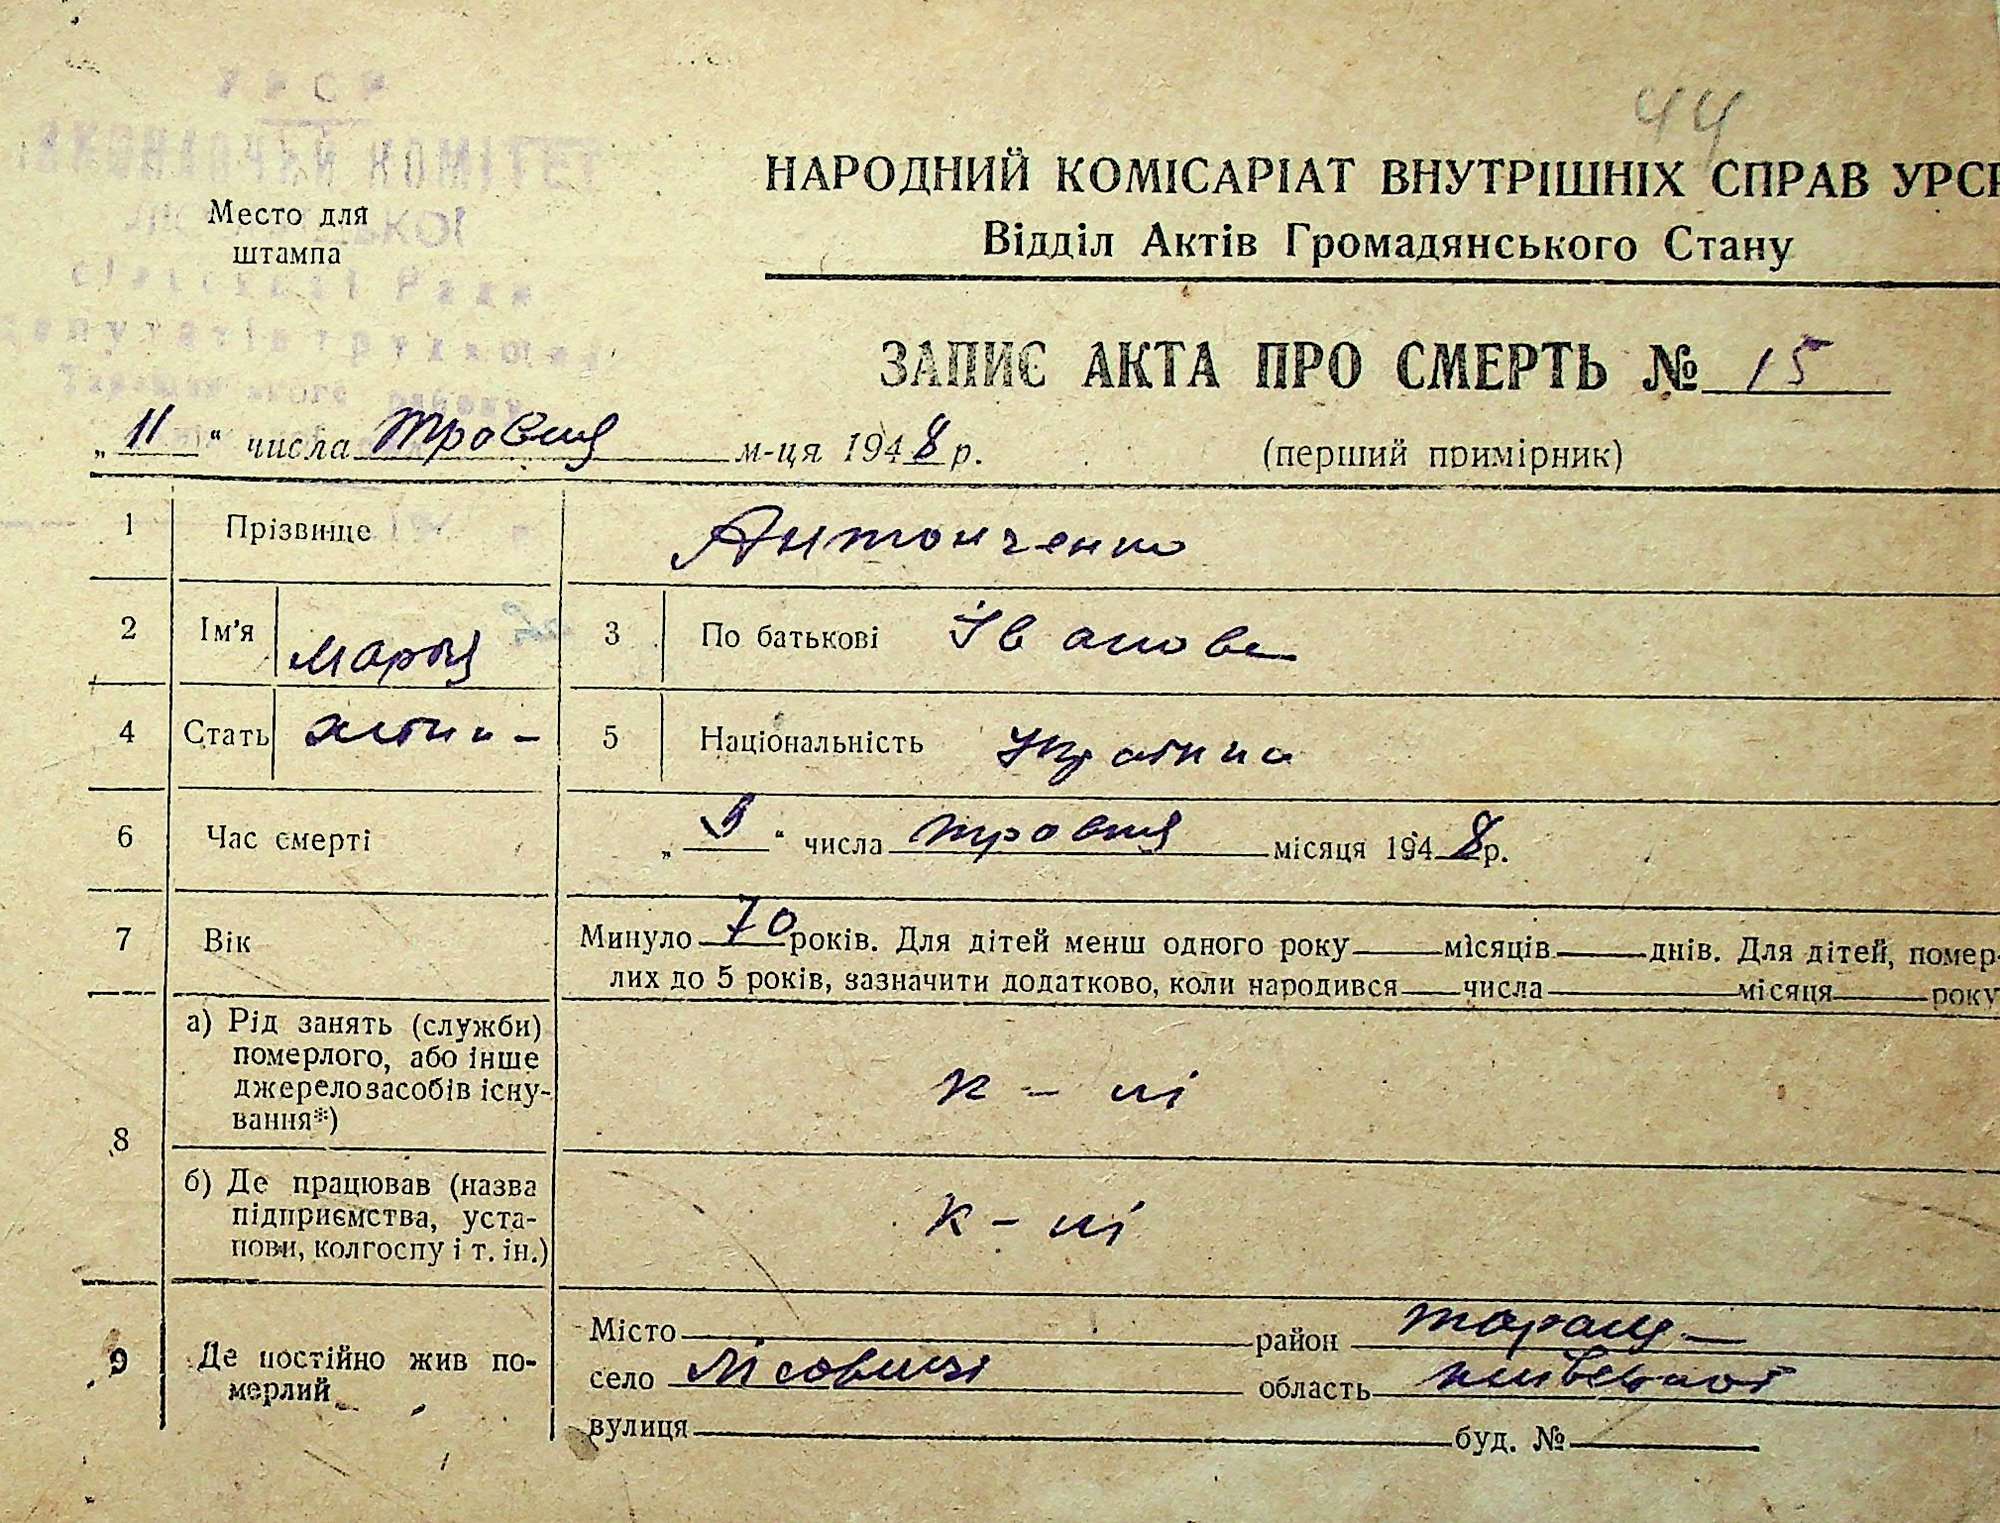 44
УРСР
ВИКОНАВЧИЙ КОМІТЕТ
сільської Ради
депутатів трудящих
Таращанського району
Место для
штампа
НАРОДНИЙ КОМІСАРІАТ ВНУТРІШНІХ СПРАВ УРСР
Відділ Актів Громадянського Стану
ЗАПИС АКТА ПРО СМЕРТЬ № 15
„11“ числа травня м-ця 1948 р.
(перший примірник)
1 Прізвище Антонченко
2 Ім'я Марія 3 По батькові Іванова
4 Стать жіноч- 5 Національність Українка
6 Час смерті „9“ числа травня місяця 1948 р.
7 Вік Минуло 70 років. Для дітей менш одного року місяців днів. Для дітей, помер-
лих до 5 років, зазначити додатково, коли народився числа місяця року
8 а) Рід занять (служби)
померлого, або інше
джерело засобів існу-
вання*)
к-пі
б) Де працював (назва
підприємства, уста-
нови, колгоспу і т. ін.)
к-пі
9 Де постійно жив по-
мерлий
Місто район Тараща-
село Лісовичі область Київської
вулиця буд. №